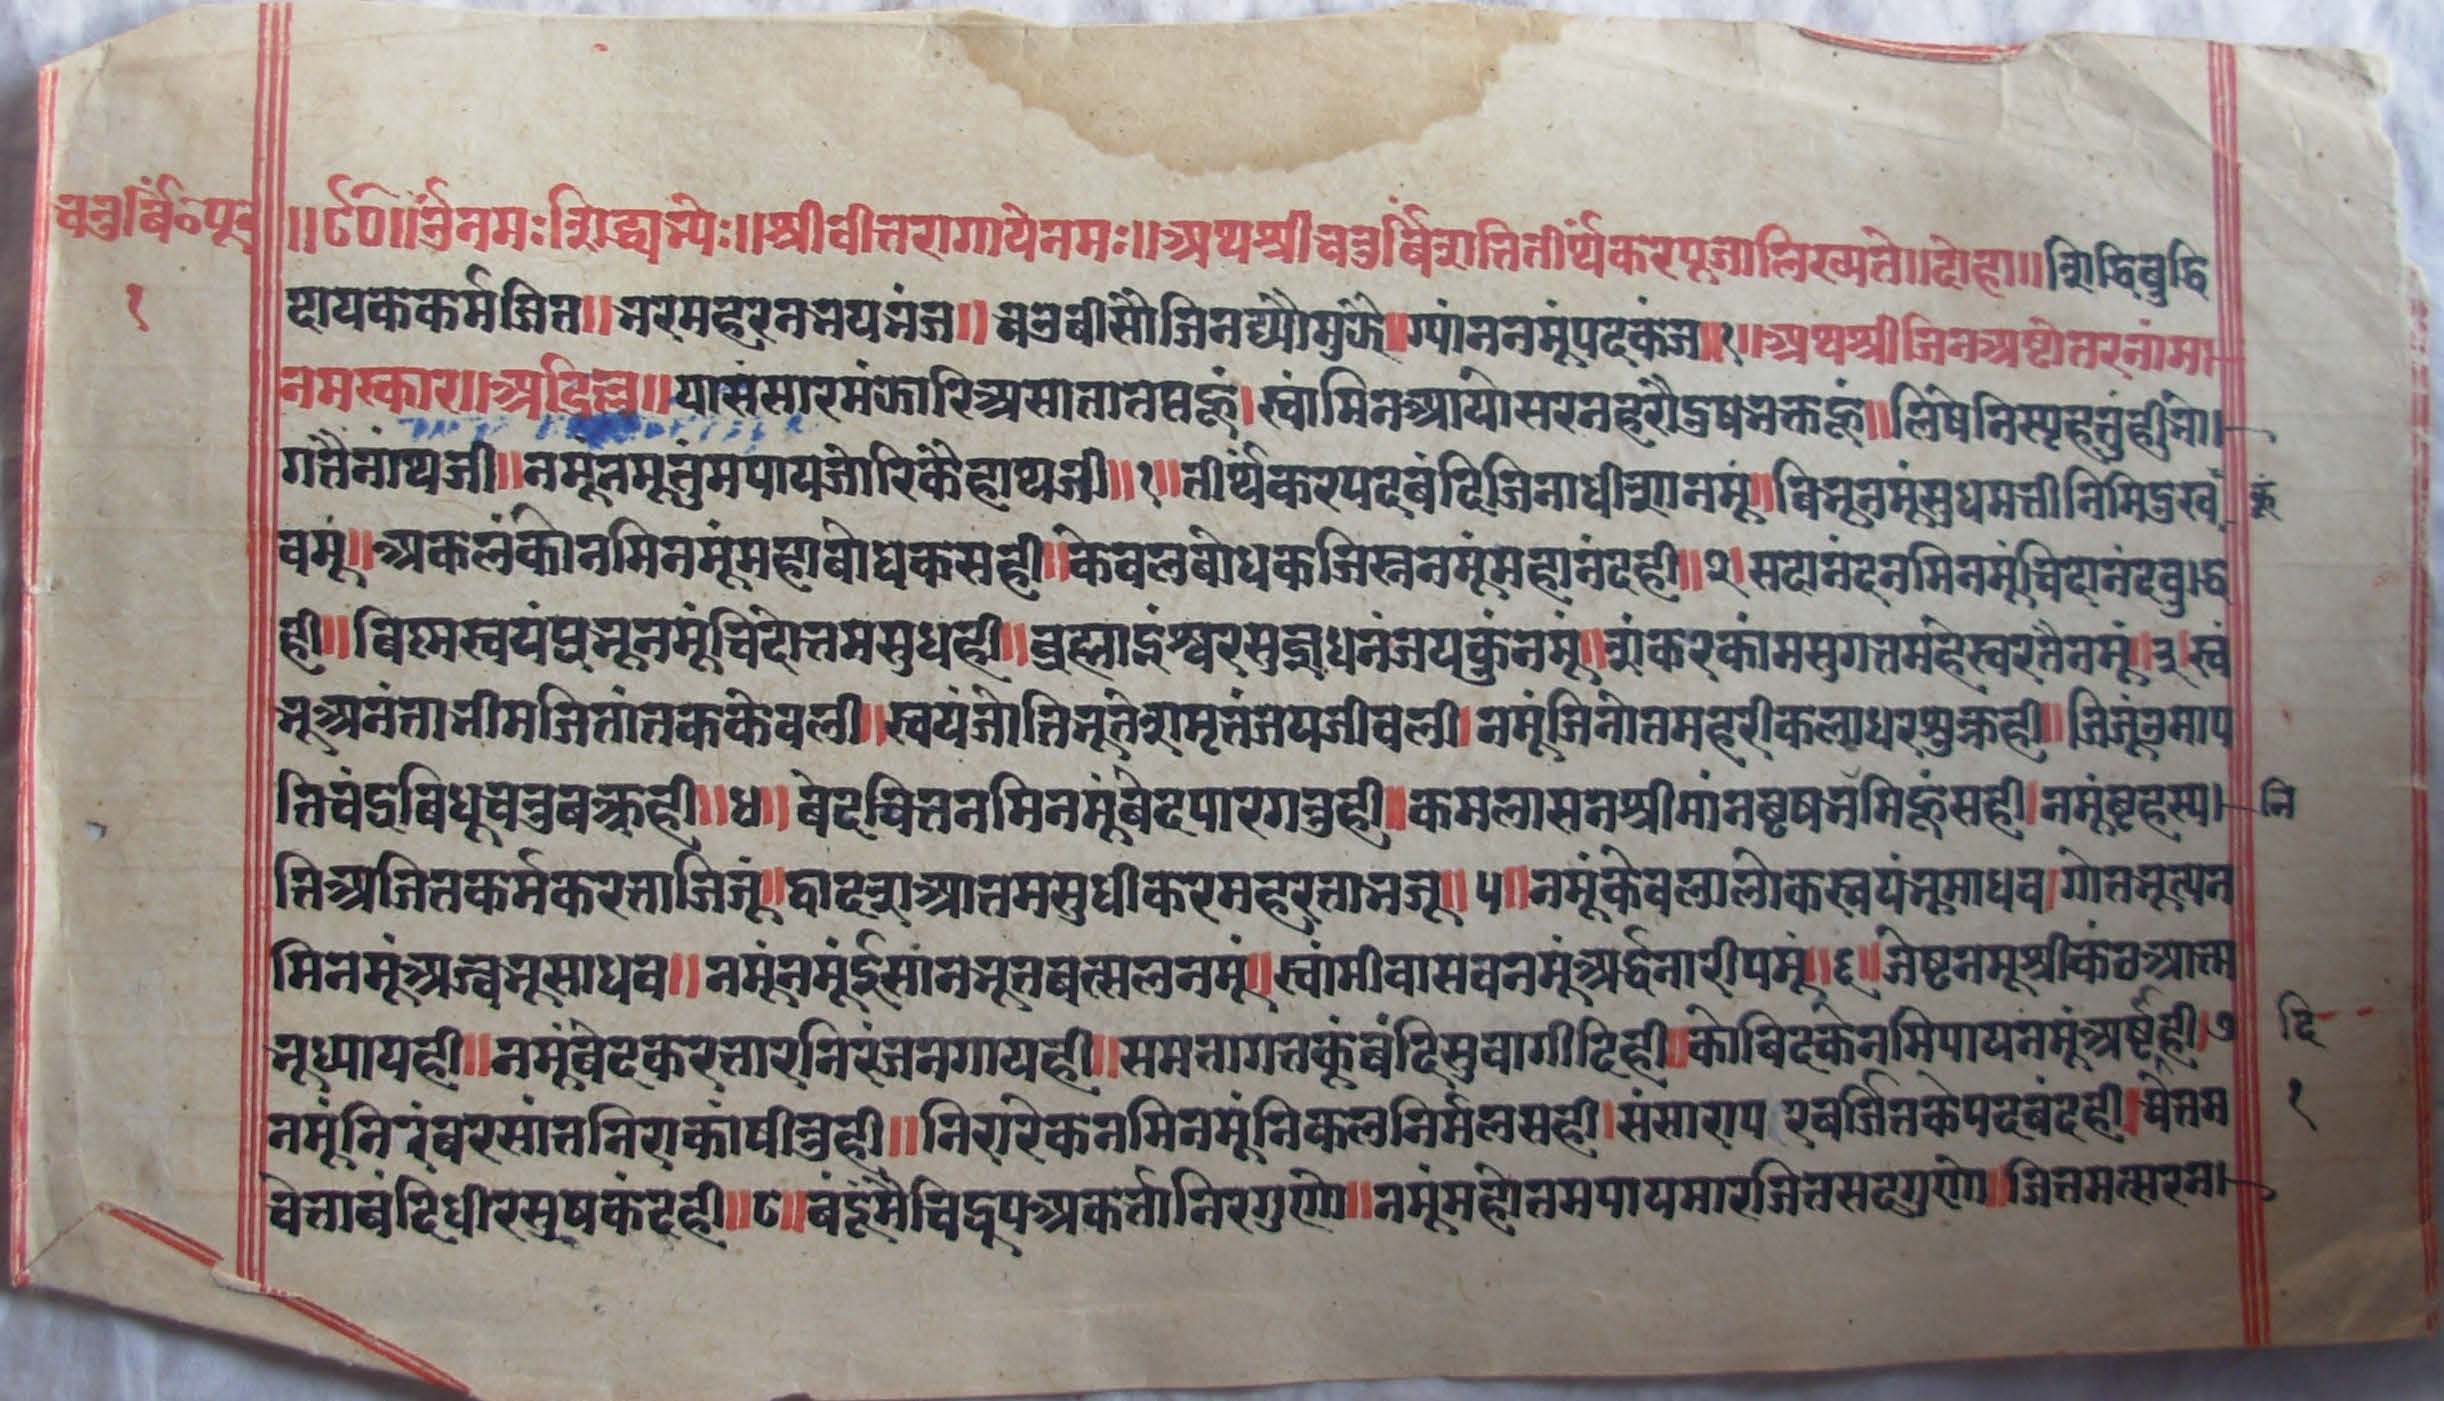 चतुर्बिं॰पूज ॥९०॥ ॐनमःशिद्धाभ्येः॥श्रीवीतरागायेनमः॥अथश्रीचतुर्बिंशतितीर्थंकरपूजालिख्यते॥दोहा॥शिद्धिबुद्धि
१
दायककर्मजित॥भरमहरनभयभंज॥चतुबीसौजिनद्यौमुझै॥ग्यांननमूंपदकंज॥१॥अथश्रीजिनअष्टोतरनांमा
नमस्कार॥अदिल्ल॥यासंसारमंझारिअसातातप्तहूं।स्वांमिनआयोसरनहरौदुषभक्तहूं॥लिषेनिस्पृहतुंहीभो।
गतैनांथजी॥नमूनमूतुंमपायजोरिकैहाथजी॥१॥तीर्थंकरपदबंदिजिनाधीशनमूं॥बिभूनमूंसुधमतीनिमिदुख
कूं
वमूं॥अकलंकोनमिनमूंमहाबोधकसही॥केवलबोधकजिस्ननमूंमहानंदही॥२।सदानंदनमिनमूंचिदानंदबु।द्ध
ही॥बिस्मस्वयंप्रभूनमूंचिदोत्तमसुधही॥ब्रह्माईश्वरसुब्रुधनंजयकुंनमूं॥शंकरकांमसुगतमहेस्वरतैनमूं॥३।स्वं
भूअनंताभीमजितांतककेवली॥स्वयंजोतिभूतेशमृतंजयजीवली।नमूंजिनोतमहरीकलाधरशुक्रही॥जिभूंउमाप
तिचंद्रबिधूचतुबक्रही॥४॥बेदबित्तनमिनमूंबेदपारगतुही॥कमलासनश्रीमांनबृषभनमिहूंसही।नमूंबृहस्प।
नि
तिअजितकर्मकरताजिजूं॥द्वादशआतमसुधीकरमहरताभजू॥५॥नमूंकेवलालोकस्वयंभूमाधव।गोतभूत्पन
मिनमूंअज्वभूसाधव॥नमूंनमूंईसांनभूतबत्सलनमूं॥स्वांमीवासवनमूंअर्द्धनारीपमूं॥६॥जेष्टनमूश्रीकंठआत्म
भूध्यायही॥नमूंबेदकरतारनिरंजनगायही॥समतागतकूंबंदिसुवागीदिही॥कोबिदकेनमिपायनमूंअर्ष्टही।७
दि
नमूंनिरंबरसांतनिराकांषीतुही॥निरारेकनमिनमूंनिकलनिर्मलसही।संसाराप रबर्जितकेपदबंदही।षेत्तम
१
वेताबंदिधीरसुषकंदही॥८॥बंदूंमैचिद्रूपअकर्तानिरगुणो॥नमूंमहोतमपायमारजितसदगुणो॥जितमत्सरन।